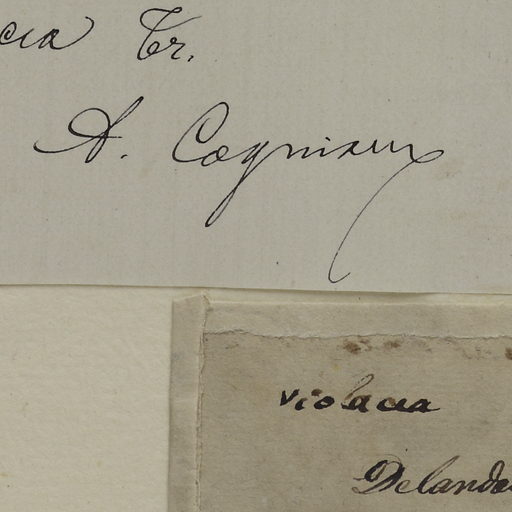 cea Tr.
A. Cogniaux
violacea
Delanda